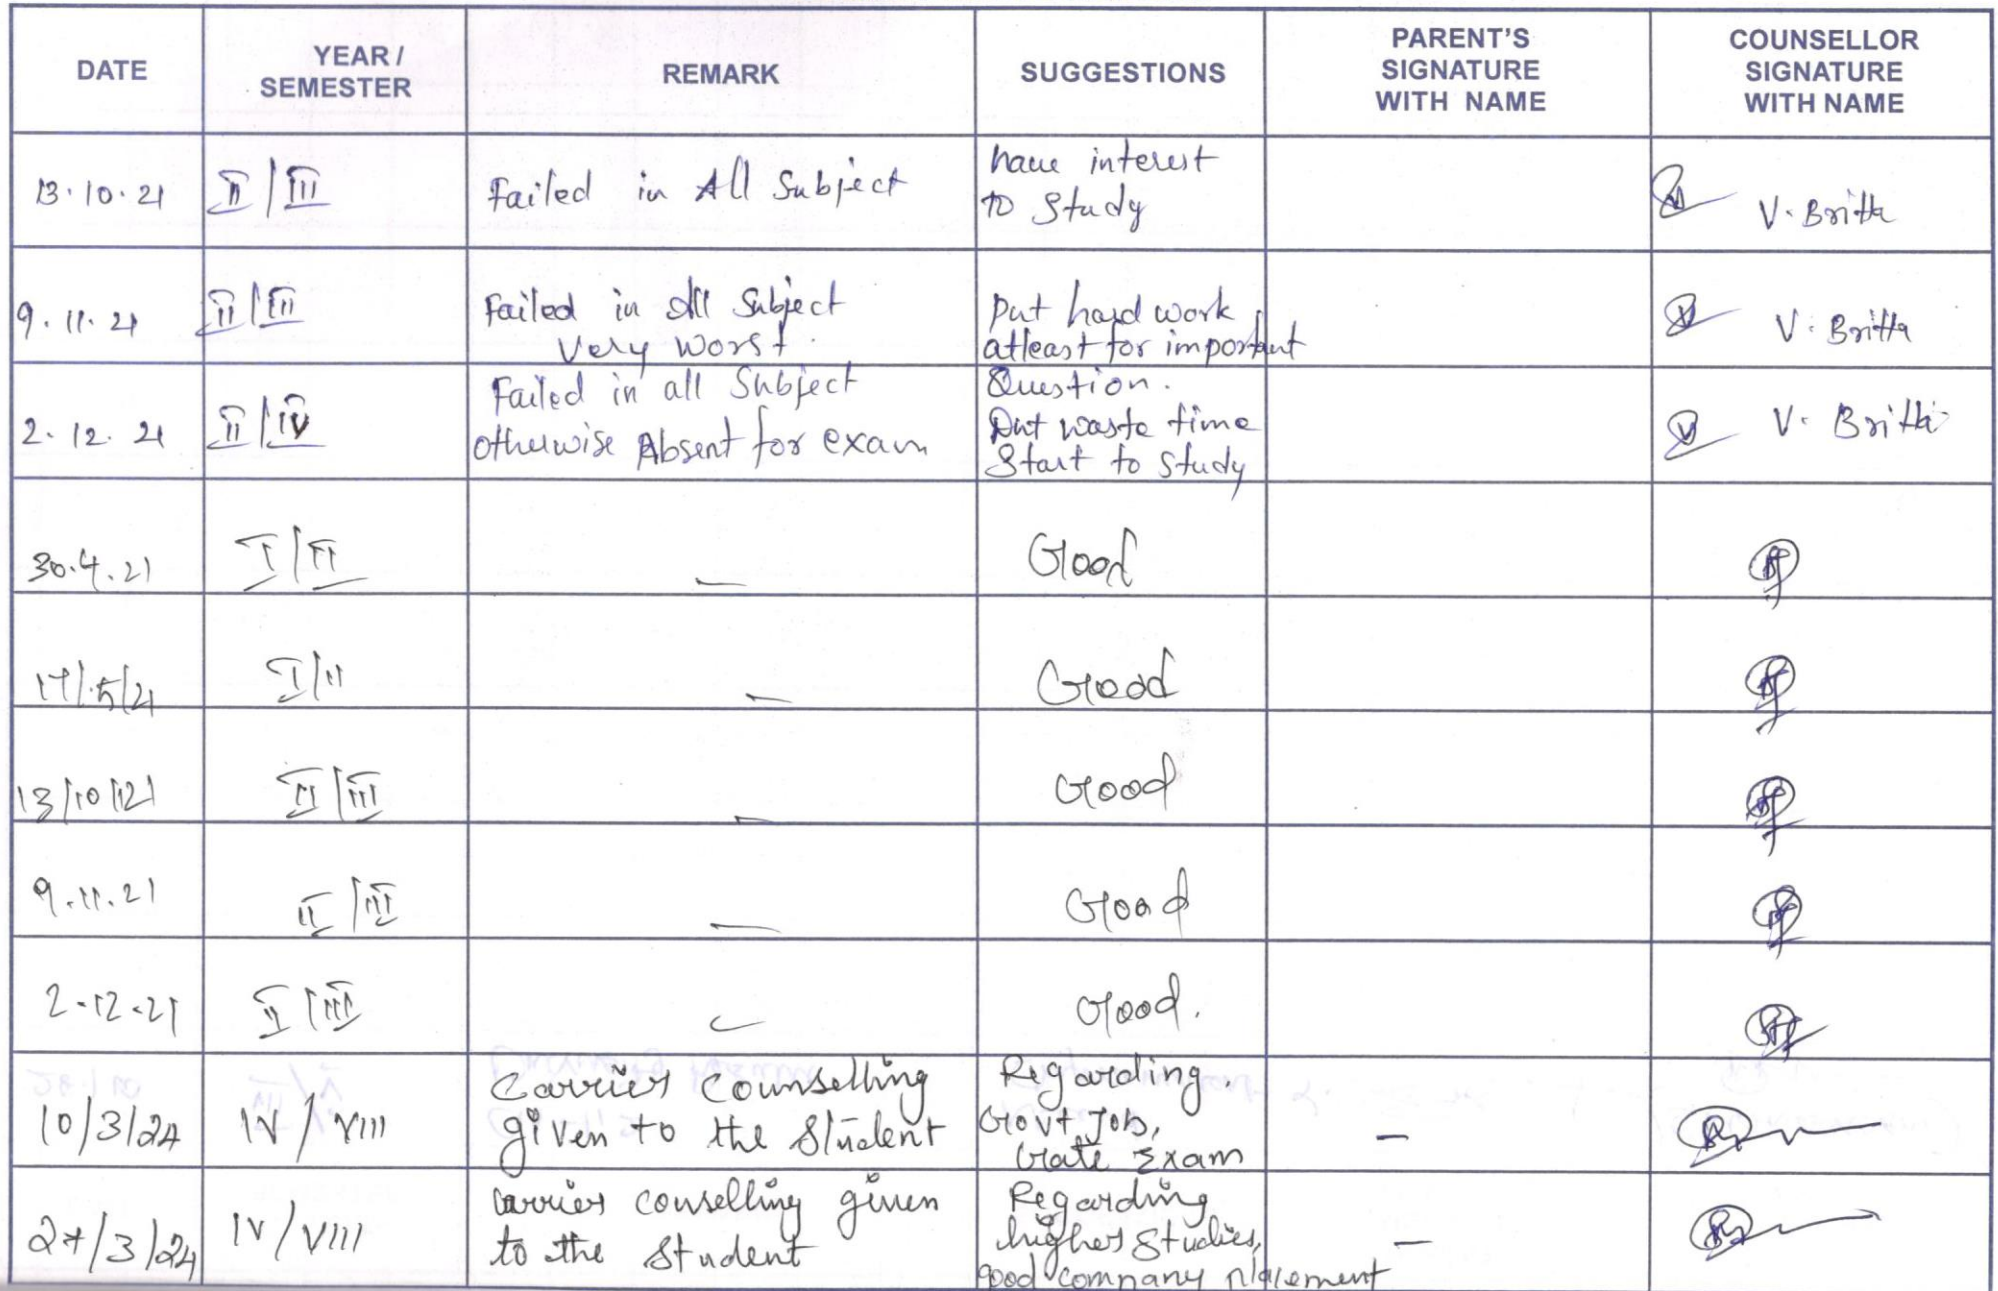 DATE
YEAR /
SEMESTER
REMARK
SUGGESTIONS
PARENT'S
SIGNATURE
WITH NAME
COUNSELLOR
SIGNATURE
WITH NAME
13.10.21
II/III
Failed in All Subject
have interest
to study
V. Britta
9.11.21
II/III
Failed in All Subject
very worst.
Put hard work
atleast for important
Question.
V. Britta
2.12.21
II/IV
Failed in all Subject
otherwise Absent for exam
Dnt waste time
Start to study
V. Britta
30.4.21
I/II
—
Good
17/5/21
I/II
—
Good
13/10/21
II/III
—
Good
9.11.21
II/III
—
Good
2.12.21
II/III
—
Good.
10/3/24
IV/VIII
Carrier Counselling
given to the Student
Regarding.
Govt Job,
Gate Exam
—
27/3/24
IV/VIII
Carrier conselling given
to the Student
Regarding
higher Studies,
good company placement
—